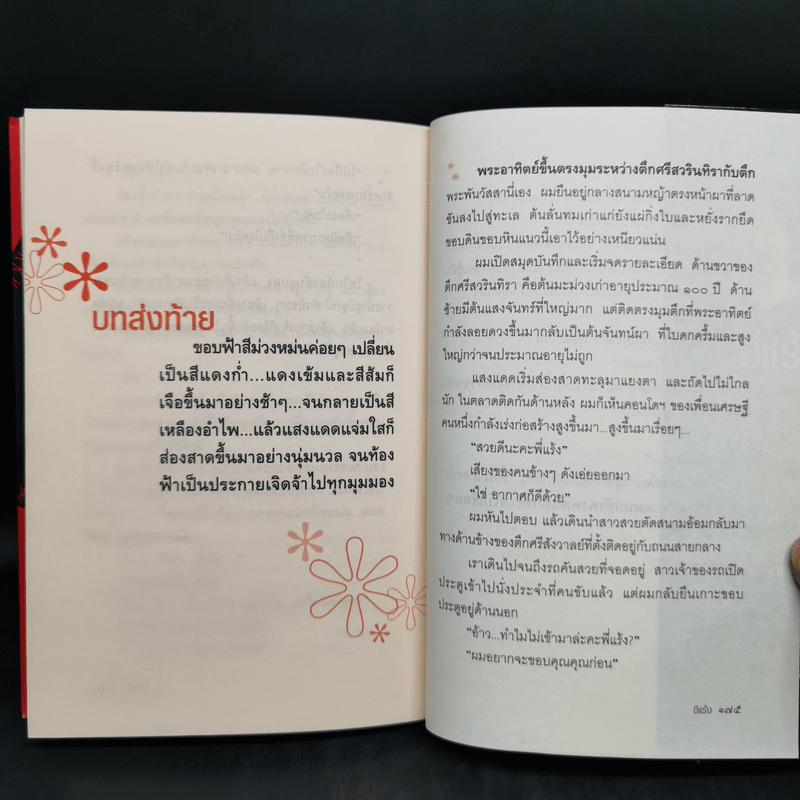 บทส่งท้าย
ขอบฟ้าสีม่วงหม่นค่อยๆ เปลี่ยน
เป็นสีแดงก่ำ...แดงเข้มและสีส้มก็
เจือขึ้นมาอย่างช้าๆ...จนกลายเป็นสี
เหลืองอำไพ...แล้วแสงแดดแจ่มใสก็
ส่องสาดขึ้นมาอย่างนุ่มนวล จนท้อง
ฟ้าเป็นประกายเจิดจ้าไปทุกมุมมอง
พระอาทิตย์ขึ้นตรงมุมระหว่างตึกศรีสวรินทิรากับตึก
พระพันวัสสานี่เอง ผมยืนอยู่กลางสนามหญ้าตรงหน้าผาที่ลาด
ชันลงไปสู่ทะเล ต้นลั่นทมเก่าแก่ยังแผ่กิ่งใบและหยั่งรากยึด
ขอบดินขอบหินแนวนี้เอาไว้อย่างเหนียวแน่น
ผมเปิดสมุดบันทึกและเริ่มจดรายละเอียด ด้านขวาของ
ตึกศรีสวรินทิรา คือต้นมะม่วงเก่าอายุประมาณ ๑๐๐ ปี ด้าน
ซ้ายมีต้นแสงจันทร์ที่ใหญ่มาก แต่ติดตรงมุมตึกที่พระอาทิตย์
กำลังลอยดวงขึ้นมากลับเป็นต้นจันทน์ผา ที่ใบดกครึ้มและสูง
ใหญ่กว่าจนประมาณอายุไม่ถูก
แสงแดดเริ่มส่องสาดทะลุมาแยงตา และถัดไปไม่ไกล
นัก ในตลาดติดกันด้านหลัง ผมก็เห็นคอนโดฯ ของเพื่อนเศรษฐี
คนหนึ่งกำลังเร่งก่อสร้างสูงขึ้นมา...สูงขึ้นมาเรื่อยๆ...
“สวยดีนะคะพี่แร้ง”
เสียงของคนข้างๆ ดังเอ่ยออกมา
“ใช่ อากาศก็ดีด้วย”
ผมหันไปตอบ แล้วเดินนำสาวสวยตัดสนามอ้อมกลับมา
ทางด้านข้างของตึกศรีสังวาลย์ที่ตั้งติดอยู่กับถนนสายกลาง
เราเดินไปจนถึงรถคันสวยที่จอดอยู่ สาวเจ้าของรถเปิด
ประตูเข้าไปนั่งประจำที่คนขับแล้ว แต่ผมกลับยืนเกาะขอบ
ประตูอยู่ด้านนอก
“อ้าว...ทำไมไม่เข้ามาล่ะคะพี่แร้ง?
“ผมอยากจะขอบคุณคุณก่อน”
อีแร้ง ๑๗๕